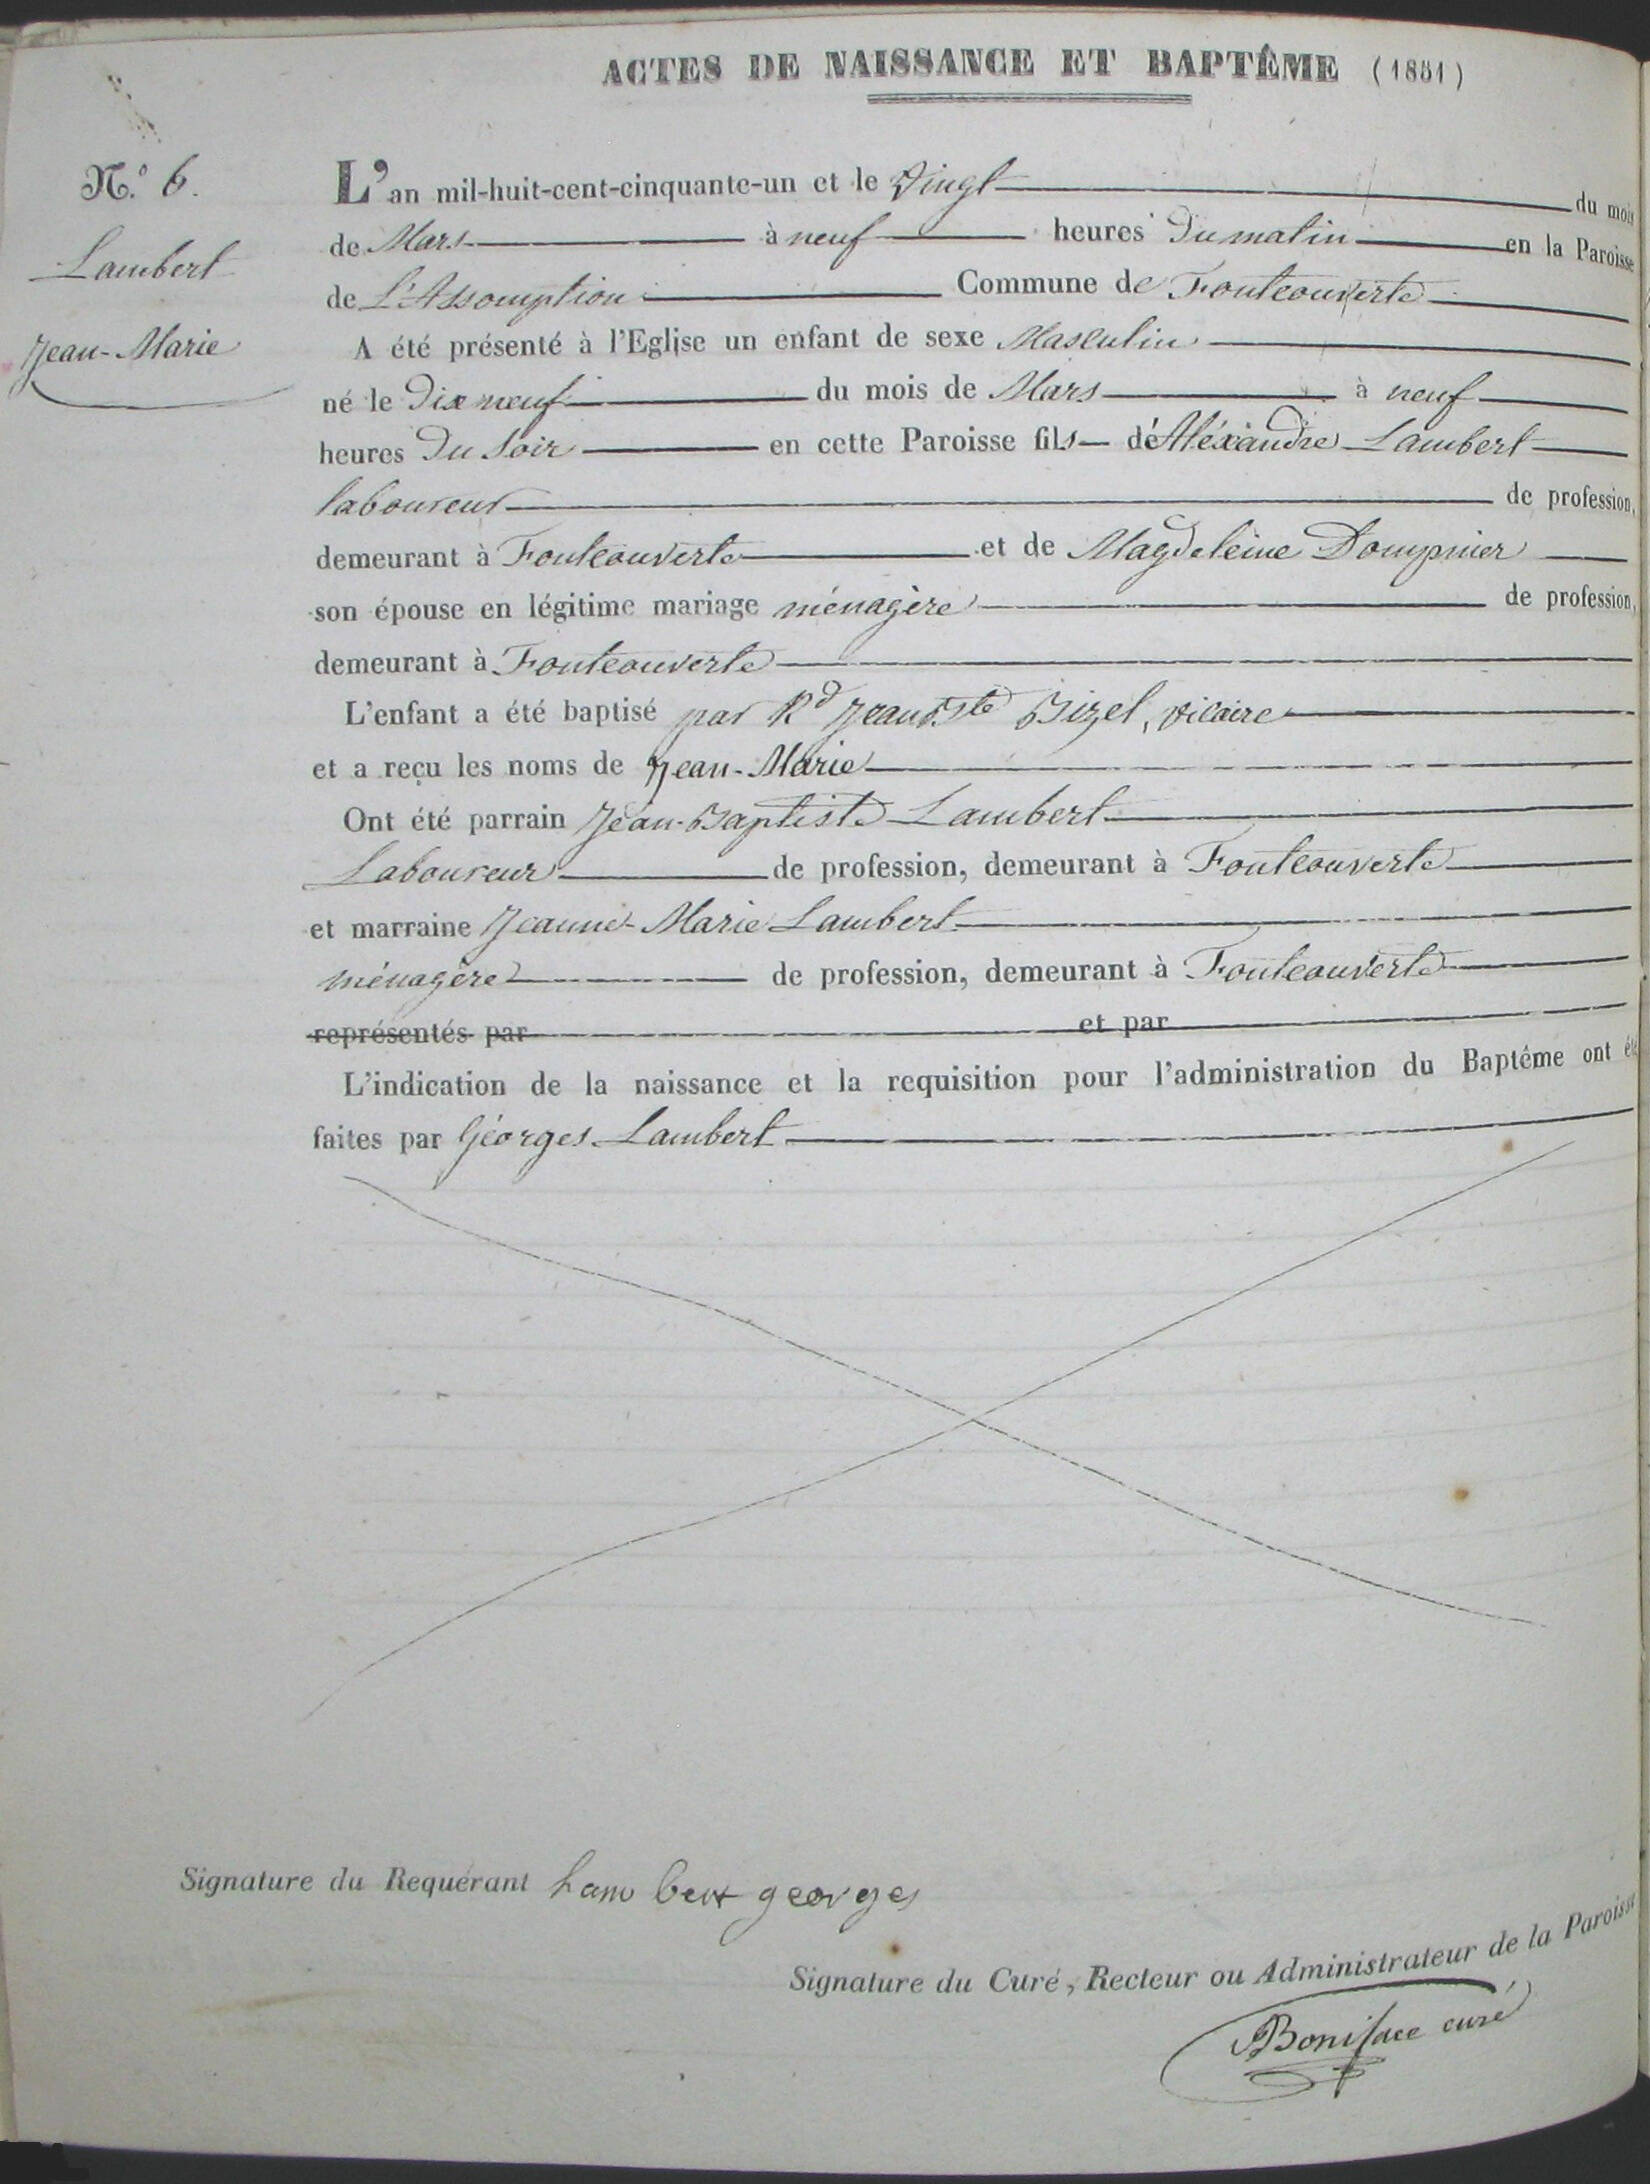 ACTES DE NAISSANCE ET BAPTÊME (1851)
N.° 6.
Lambert
Jean-Marie
L'an mil-huit-cent-cinquante-un et le Vingt du mois
de Mars à neuf heures Du matin en la Paroisse
de L'Assomption Commune de Fontcouverte
A été présenté à l'Eglise un enfant de sexe Masculin
né le Dix neuf du mois de Mars à neuf
heures Du Soir en cette Paroisse fils d'Aléxandre Lambert
laboureur de profession,
demeurant à Fontcouverte et de Magdeleine Dompnier
son épouse en légitime mariage ménagère de profession,
demeurant à Fontcouverte
L'enfant a été baptisé par Rd Jean Bste Bizel, vicaire
et a reçu les noms de Jean-Marie
Ont été parrain Jean-Baptiste Lambert
Laboureur de profession, demeurant à Fontcouverte
et marraine Jeanne-Marie Lambert
ménagère de profession, demeurant à Fontcouverte
représentés par et par
L'indication de la naissance et la requisition pour l'administration du Baptême ont été
faites par Géorges Lambert
Signature du Requérant Lambert georges
Signature du Curé, Recteur ou Administrateur de la Paroisse
Boniface curé